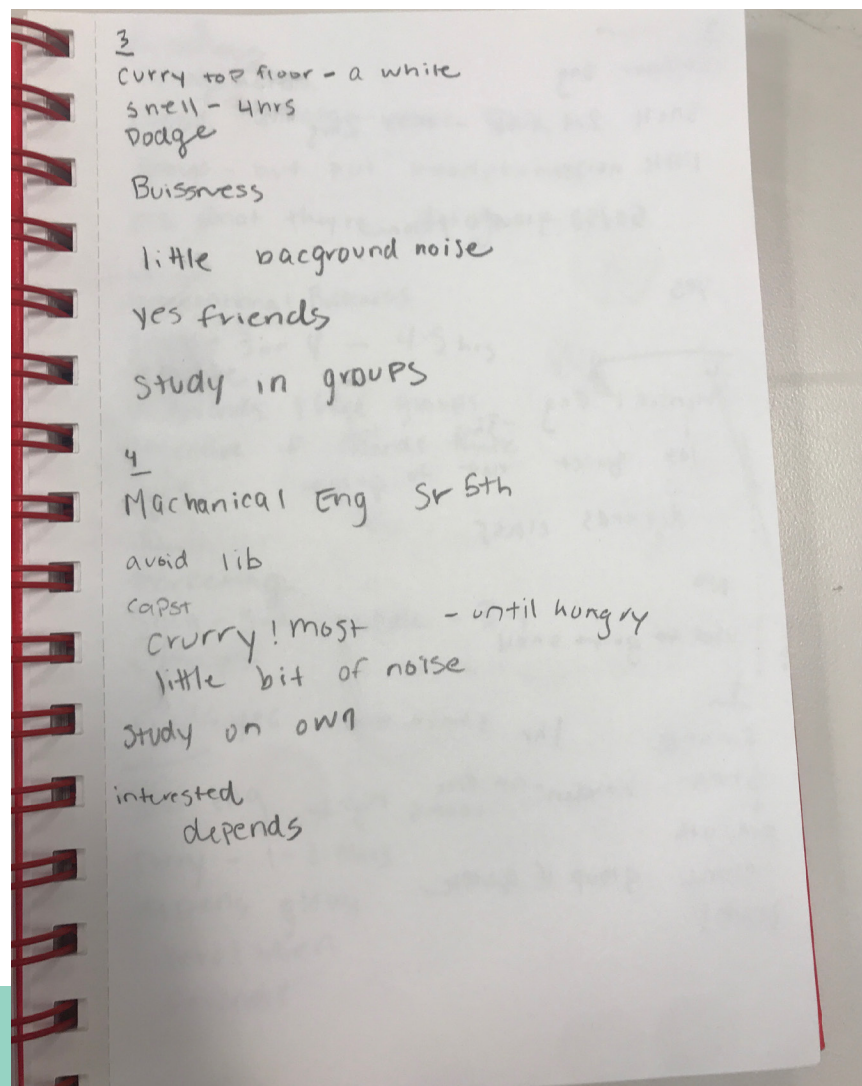 3
Curry top floor - a while
snell - 4hrs
Dodge
Buissness
little bacground noise
yes friends
study in groups
4
Machanical Eng Sr 5th
avoid lib
capst
crurry! most - until hungry
little bit of noise
study on own
interested
depends